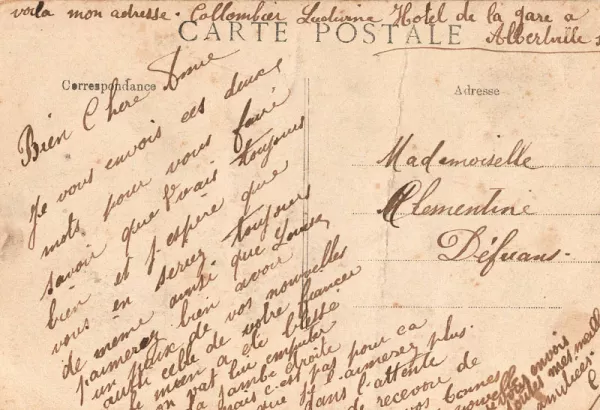 voila mon adresse. Collombier Ludivine Hotel de la gare a
Albertville
CARTE POSTALE
Correspondance
Adresse
Bien Chere Amie
Je vous envois ces deux
mots pour vous faire
savoir que vais toujours
bien et j'espère que
vous en seriez toujours
de même ainsi que Louise
j'aimerez bien avoir
un peux de vos nouvelles
aussi celle de votre fiancer
le mien a été blessé
on vat lui emputer
la jambe droite
mais c'est pas pour ca
que je l'aimerez plus.
dans l'attente
de recevoir de
bonnes
nouvelle
Mademoiselle
Clementine
Défrans.
je vous envois
toutes mes meill
amitiées.